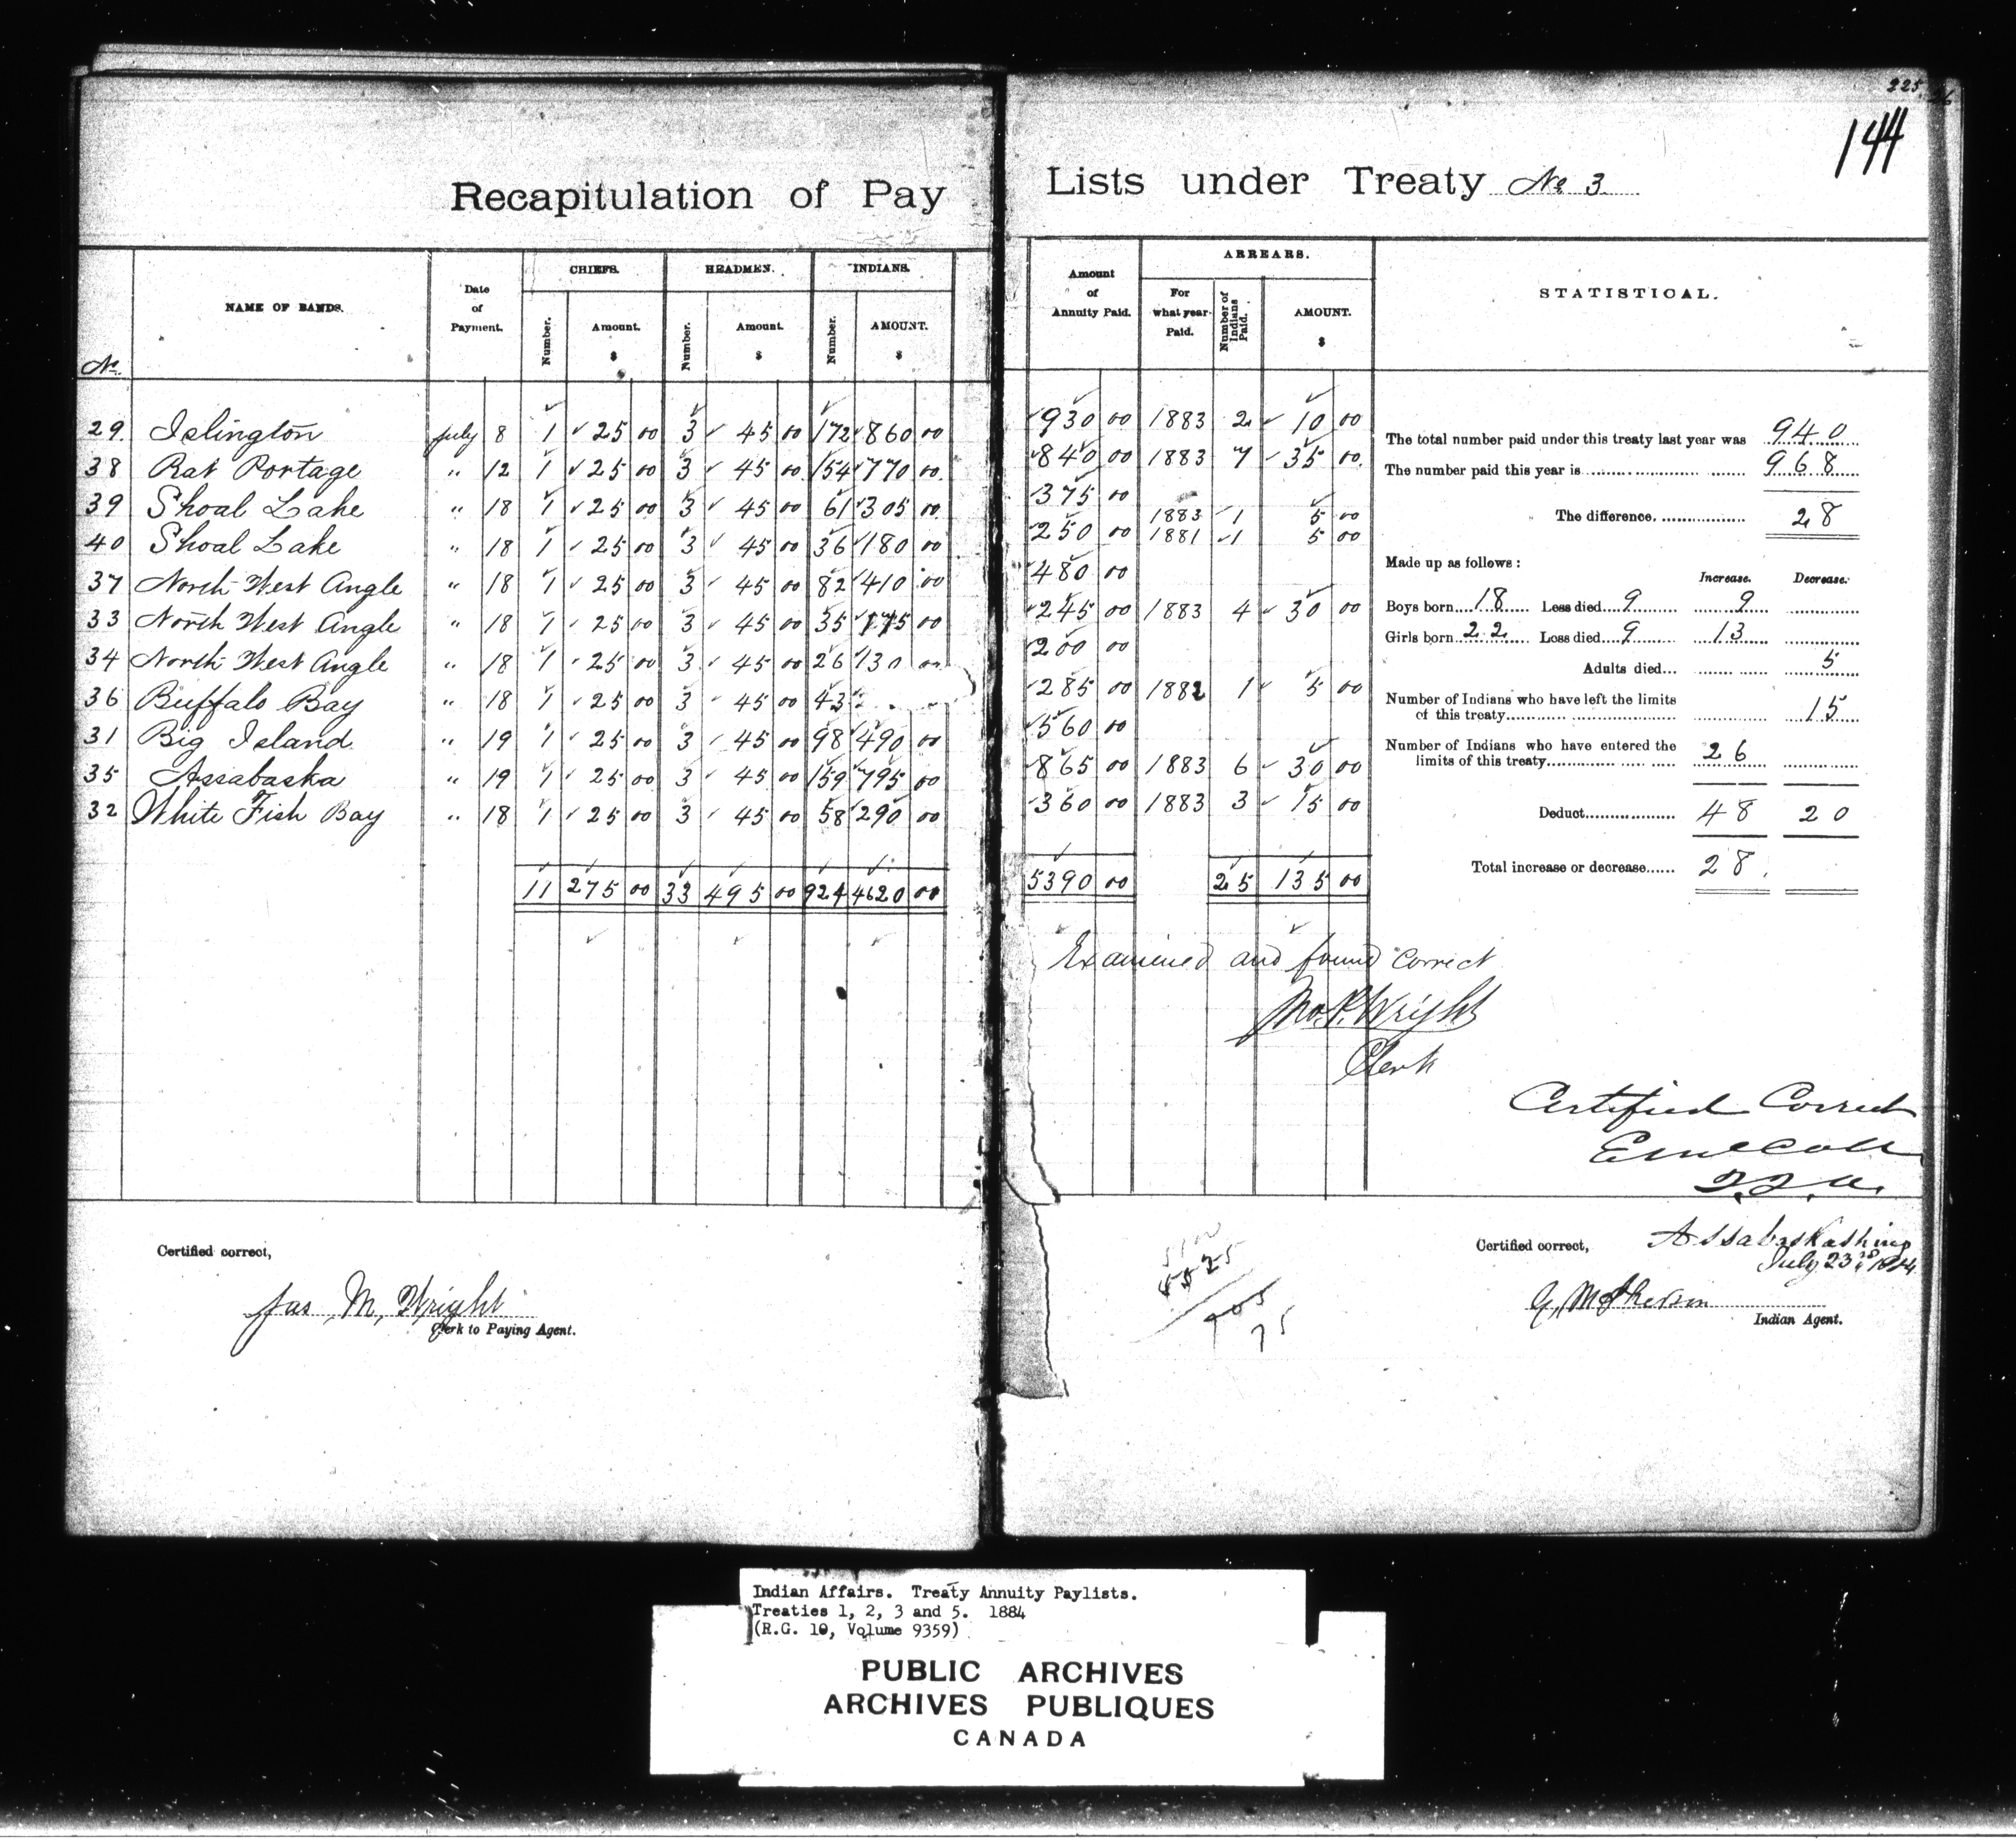 225
144
Recapitulation of Pay Lists under Treaty No 3
No. NAME OF BANDS. Date of Payment. CHIEFS. Number. Amount. $ HEADMEN. Number. Amount. $ INDIANS. Number. AMOUNT. $ Amount of Annuity Paid. ARREARS. For what year Paid. Number of Indians Paid. AMOUNT. $
29. Islington July 8 1 25 00 3 45 00 172 860 00 930 00 1883 2 10 00
38 Rat Portage " 12 1 25 00 3 45 00 154 770 00 840 00 1883 7 35 00
39 Shoal Lake " 18 1 25 00 3 45 00 61 305 00 375 00
40 Shoal Lake " 18 1 25 00 3 45 00 36 180 00 250 00 1883 1 5 00
1881 1 5 00
37 North West Angle " 18 1 25 00 3 45 00 82 410 00 480 00
33 North West Angle " 18 1 25 00 3 45 00 35 175 00 245 00 1883 4 30 00
34 North West Angle " 18 1 25 00 3 45 00 26 130 00 200 00
36 Buffalo Bay " 18 1 25 00 3 45 00 43 285 00 1882 1 5 00
31 Big Island " 19 1 25 00 3 45 00 98 490 00 560 00
35 Assabaska " 19 1 25 00 3 45 00 159 795 00 865 00 1883 6 30 00
32 White Fish Bay " 18 1 25 00 3 45 00 58 290 00 360 00 1883 3 15 00
11 275 00 33 495 00 924 4620 00 5390 00 25 135 00
STATISTICAL.
The total number paid under this treaty last year was 940
The number paid this year is 968
The difference. 28
Made up as follows:
Increase. Decrease.
Boys born 18 Less died 9 9
Girls born 22 Less died 9 13
Adults died... 5
Number of Indians who have left the limits
of this treaty 15
Number of Indians who have entered the
limits of this treaty 26
Deduct 48 20
Total increase or decrease 28.
Examined and found correct
Jno. P. Wright
Clerk
Certified Correct
Certified correct,
Jas M. Wright
Clerk to Paying Agent.
75
Certified correct, Assabaskashing
July 23rd 1884
G. McPherson
Indian Agent.
Indian Affairs. Treaty Annuity Paylists.
Treaties 1, 2, 3 and 5. 1884
(R.G. 10, Volume 9359)
PUBLIC ARCHIVES
ARCHIVES PUBLIQUES
CANADA